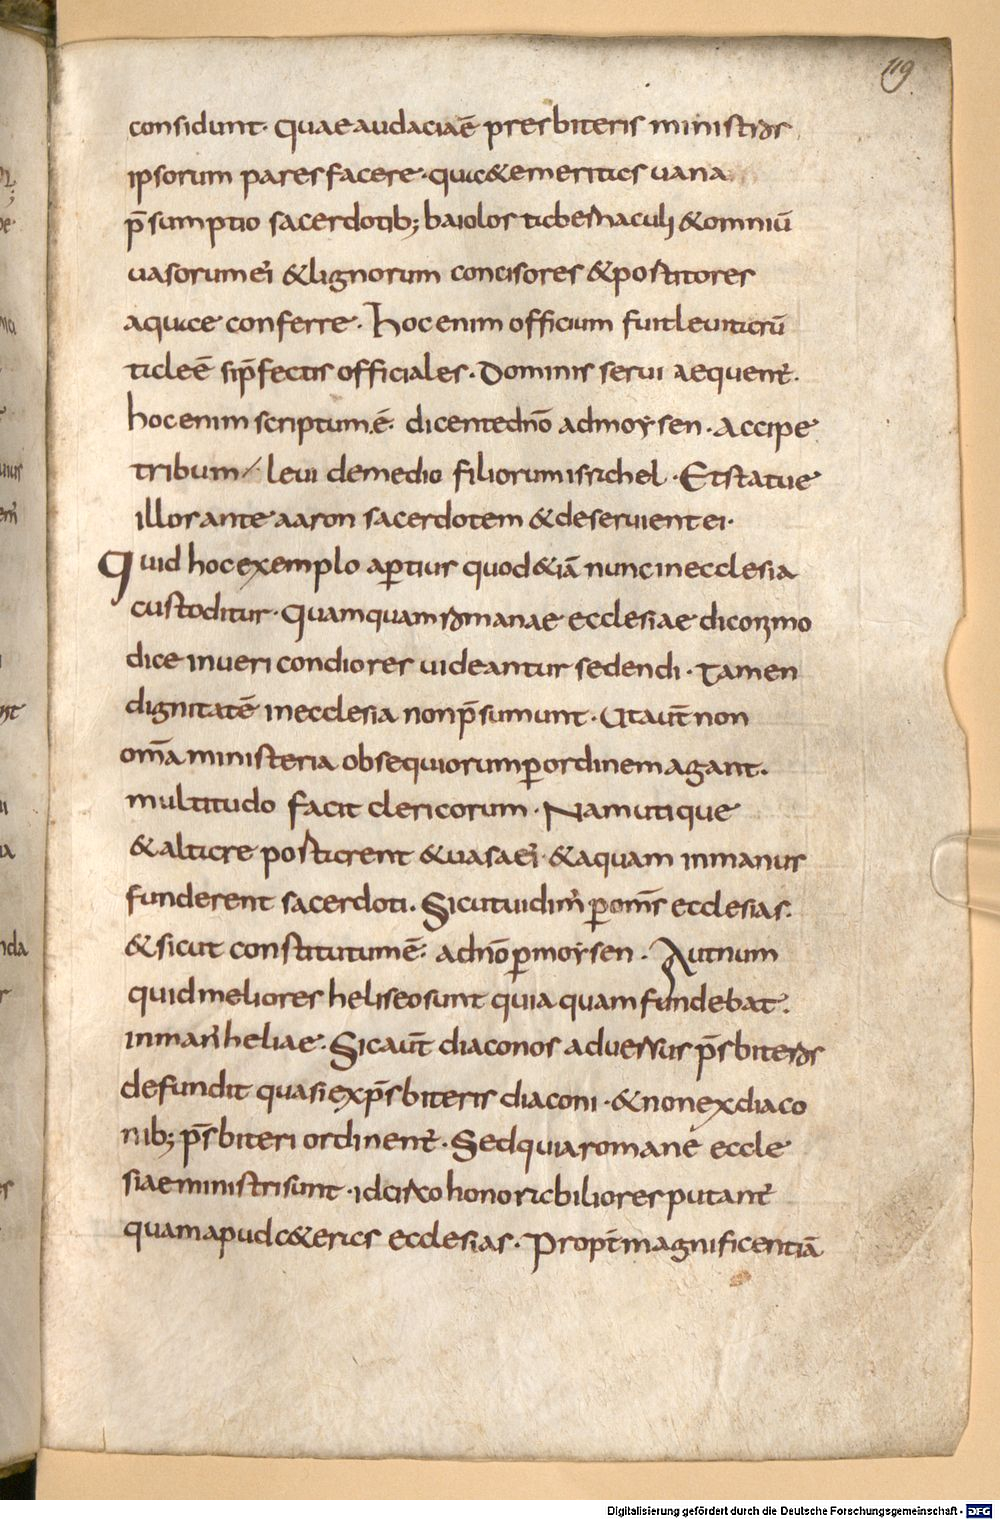 119
considunt· Quae audacia ē presbiteris ministros
ipsorum pares facere· quae & emeritas uana
p̄sumptio sacerdotib; baiolos tabernaculi & omniū
uasorum ei' & lignorum concisores & postitores
aquae conferre· Hoc enim officium fuit leuitarū
talē sip̄fectis officiales· Dominis serui aequent̄·
hoc enim scriptum ē· dicente dn̄o ad moysen· Accipe
tribum leui de medio filiorum israhel· Et statue
illos ante aaron sacerdotem & deseruient ei·
Quid hoc exemplo ap̱tius quod & iā nunc in ecclesia
custoditur· Quamquam romanae ecclesiae diconzmo
dice inueri condiores uideantur sedendi· Tamen
dignitatē in ecclesia non p̄sumunt· Ut aut̄ non
om̄a ministeria obsequiorum p̱ ordinem agant·
multitudo facit clericorum· Nam utique
& altare postarent & uasa ei'· & aquam in manus
funderent sacerdoti· Sicut uidim' p̱ om̄s ecclesias·
& sicut constitutum ē· a dn̄o p̱ moysen· Aut num
quid meliores heliseo sunt quia quam fundebat·
in man' heliae· Sic aut̄ diaconos aduersus p̄sbiteros
defundit quasi ex p̄sbiteris diaconi· & non ex diaco
nib; p̄sbiteri ordinent̄· Sed quia romane eccle
siae ministri sunt· idcirco honorabiliores putant̄
quam apud c&eras ecclesias· Propt̄ magnificentiā
Digitalisierung gefördert durch die Deutsche Forschungsgemeinschaft - DFG